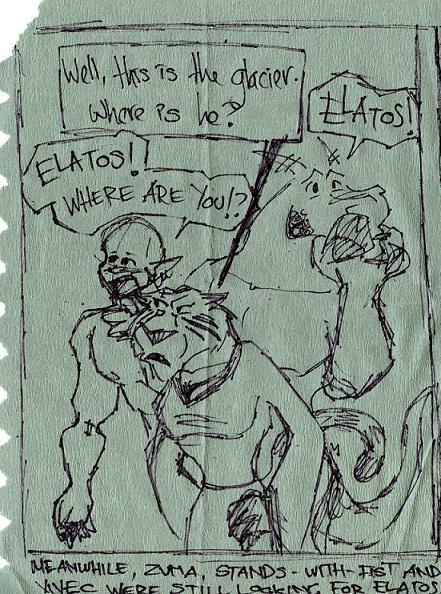 Well, this is the glacier.
Where is he?
ELATOS!
ELATOS!
WHERE ARE YOU!?
MEANWHILE, ZUMA, STANDS-WITH-FIST AND
VIVEC WERE STILL LOOKING FOR ELATOS